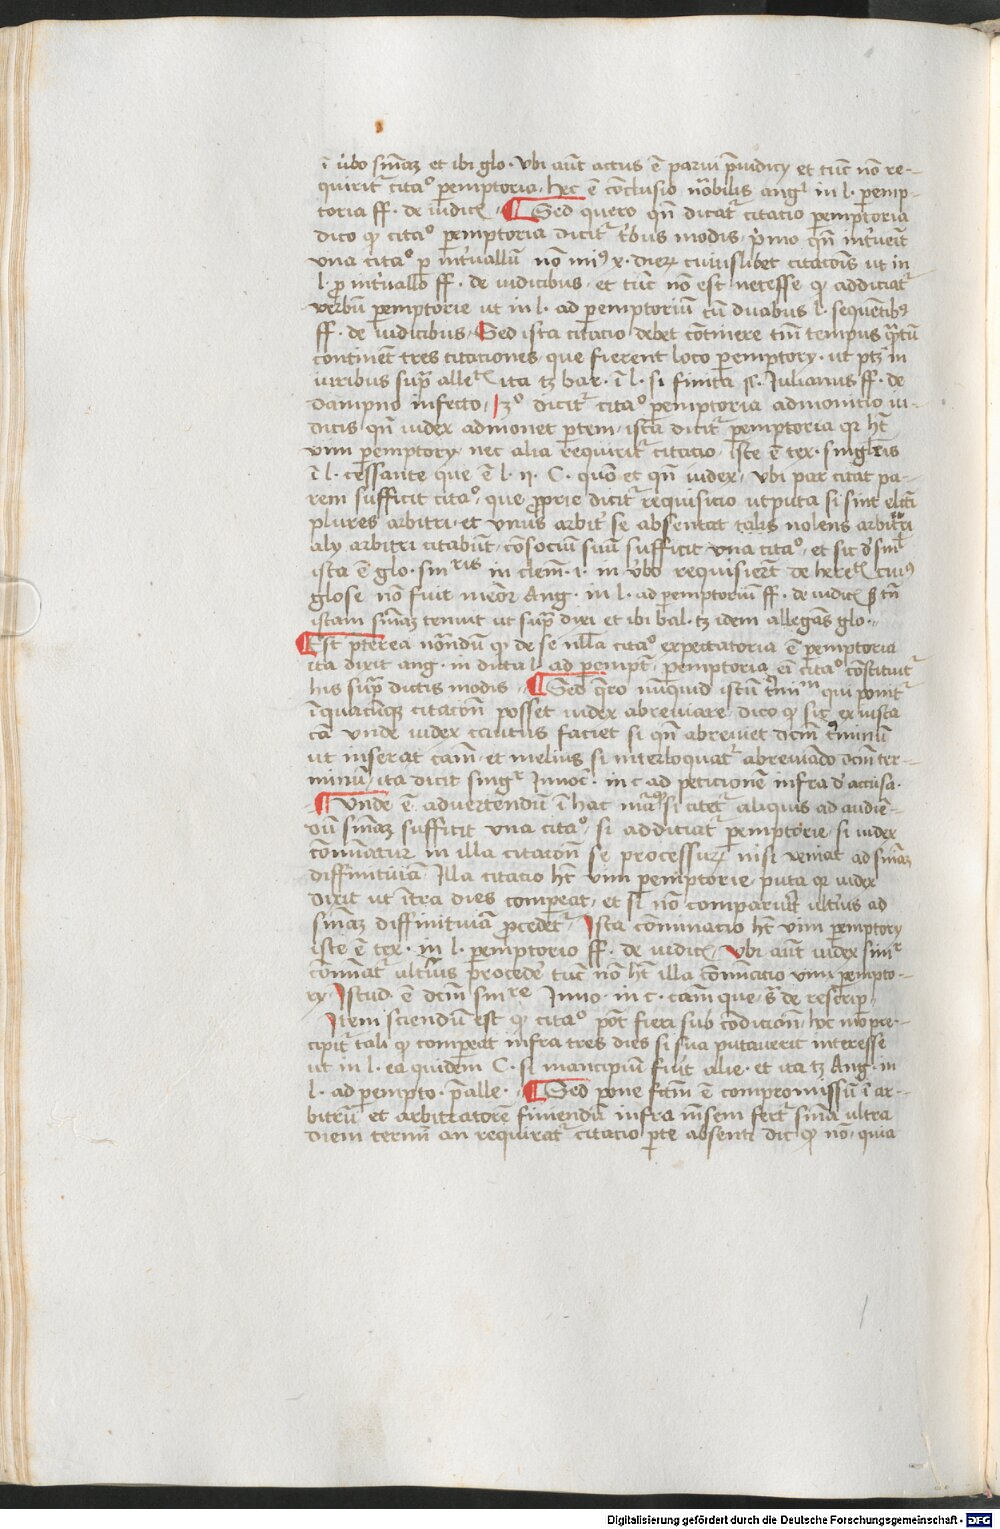 ī ūbo sn̄iaꝫ et ibi glo· vbi aūt actus ē parui p̄iudicij et tūc nō re-
quirit᷑ citaᵒ p̱emptoria· hec ē conclusio nōbilis angᶫ in l· p̱emp-
toria ff· de iudic̄ ¶ Sed quero qn̄ dicat᷑ citacio p̱emptoria
dico ꝙ citaᵒ p̱emptoria dicit᷑ t̾bus modis· p̾mo qn̄ int̾ueīt
vna citaᵒ p̱ int̾uallū nō mīꝰ x· dieꝝ cuiuslibet citac̄onis ut in
l· p̱ int̾uallo ff· de iudicibus· et tūc nō est necesse ꝙ addiciat᷑
verbū p̱emptorie ut in l· ad p̱emptoriū cū duabus l· sequētibꝰ
ff· de iudicibus· Sed ista citacio debet cōtinere tm̄ tempus q̄ntū
continēt tres citaciones· que fierent loco p̱emptorij· ut ptꝫ in
iuribus sup̄ alleᵗ̄ ita tꝫ bar· ī l· si finita §· Julianus ff· de
dampno infecto· ꝫᵒ dicit᷑ citaᵒ p̱emptoria admonicio iu-
dicis qn̄ iudex admonet p̱tem· ista dicit᷑ p̱emptoria qꝛ hꝫ
vim p̱emptorij· nec alia requirit᷑ citacio· iste ē tex· singl̄ris
ī l· cessante que ē l· ij· C· quō et qn̄ iudex· vbi par citat pa-
rem sufficit citaᵒ· que ꝓprie dicit᷑ requisicio utputa si sint el̄cti
plures arbitri· et vnus arbit̾ se absentat talis nolens arbitrari
alij arbitri citabūt· cōsociū suū sufficit vna citaᵒ· et sic d̾ smᶫ
ista ē glo· sinᵍris in clem̄· i· in v̾bo requisier̄t de here͞t cuiꝰ
glose nō fuit meōr Ang· in l· ad p̱emptoriū ff· de iudic̄ ꝫ tn̄
istam sn̄iaꝫ tenuit ut sup̄ dixi et ibi bal· tꝫ idem allegās glo·
Est p̄terea nōndū ꝙ de se nll̄a citaᵒ expectatoria ē p̱emptoria
ita dixit ang· in dicta l· ad p̱empt̄· p̱emptoria ei citaᵒ cōstituit᷑
his sup̄ dictis modis ¶ Sed q̄ro nūquid istū t̾minū qui ponit᷑
ī quacūqꝫ citac̄on posset iudex abreuiare· dico ꝙ sic ex iusta
cā vnde iudex cautius faciet si qn̄ abreuiet dc̄m t̾minū
ut inserat cām· et melius si interloquat᷑ abreuiādo dc̄m ter-
minū· ita dicit singᷓ Innoc̄· in c ad peticionē infra d̾ accusa·
¶ Vnde ē aduertendū ī hac mā· ꝙ si citet᷑ aliquis ad audiē-
dū sn̄iaꝫ sufficit vna citaᵒ· si addiciat᷑ p̱emptorie· si iudex
cōminatur in illa citac̄on se processuꝝ nisi veniat ad sn̄iaꝫ
diffinitiuā· Illa citacio hꝫ vim p̱emptorie· puta qꝛ iudex
dixit ut ītra dies compeat· et si nō comparūit ult̾ius ad
sn̄iaꝫ diffinitiuā procedet᷑· Ista cōminacio hꝫ vim p̱emptorij
iste ē tex· in l· p̱emptorio ff· de iudic̄· Vbi aūt iudex simᷓ
cōminat᷑ ult̾ius procede̾ tūc nō hꝫ illa cōmīacio vim p̱empto-
rij· Istud ē dc̄m sinʳᵉ Inno· in c· cām que s̄ de rescrip̄
Item sciendū est ꝙ citaᵒ pōt fieri sub condicion̄· hoc mō pre-
cipit᷑ tali ꝙ compeat infra tres dies si sua putauerit interesse
ut in l· ea quidem C· si mancipiū fuit alie· et ita tꝫ Ang· in
l· ad p̱empto· p̄alle· ¶ Sed pone fc̄m ē compromissū ī ar-
bitrū et arbitratorē finiendū infra mēsem fert᷑ sn̄ia ultra
diem term̄ an requirat᷑ citacio p̱te absenti dic ꝙ nō· quia
Digitalisierung gefördert durch die Deutsche Forschungsgemeinschaft · DFG